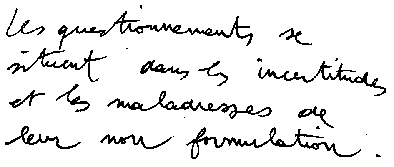 Les questionnements se
situent dans les incertitudes
et les maladresses de
leur non formulation.